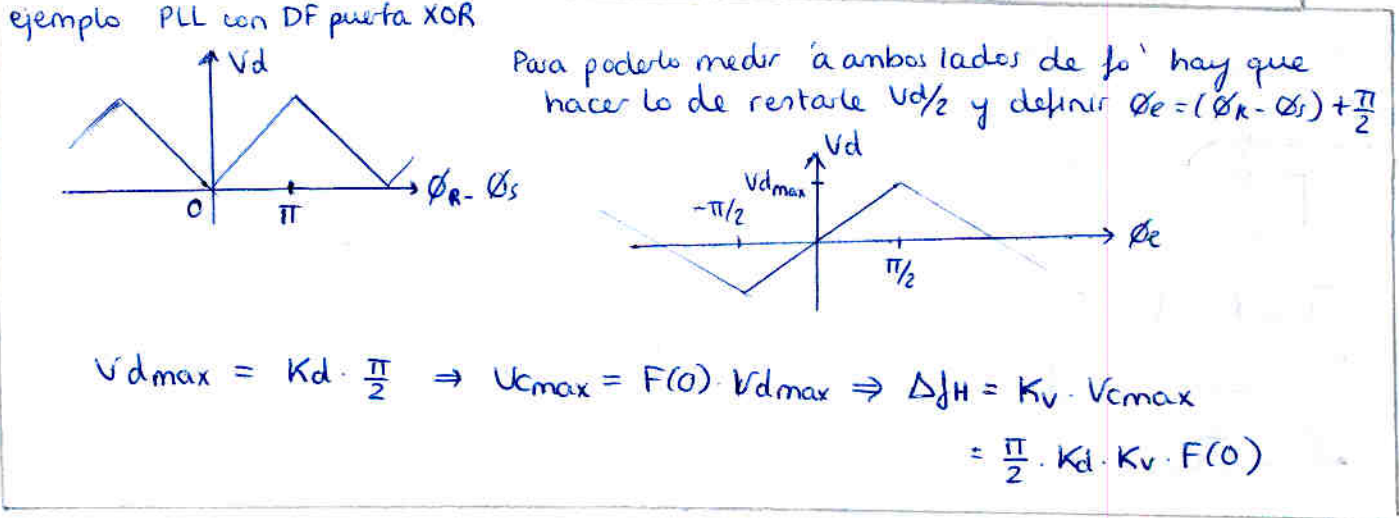 ejemplo PLL con DF puerta XOR
Para poderlo medir 'a ambos lados de fo' hay que
hacer lo de restarle Vd/2 y definir Øe = (ØR - Øs) + π/2
Vd
0
π
ØR - Øs
Vd
Vdmax
-π/2
π/2
Øe
Vdmax = Kd · π/2 ⇒ Vcmax = F(0) · Vdmax ⇒ ΔfH = Kv · Vcmax
= π/2 · Kd · Kv · F(0)